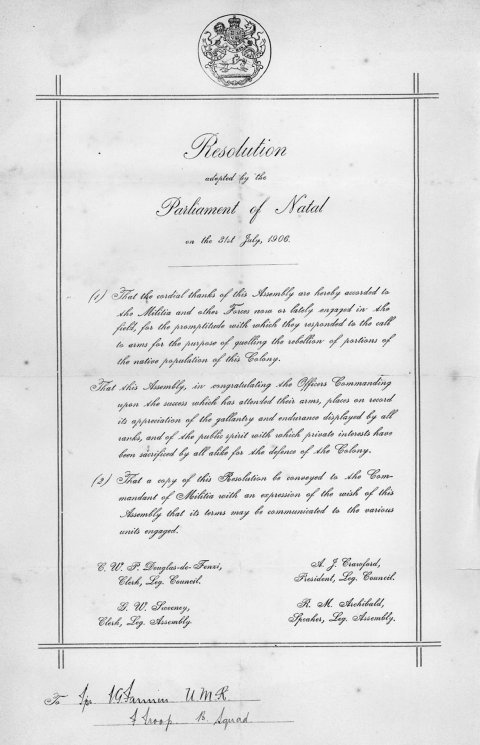 Resolution
adopted by the
Parliament of Natal
on the 31st July, 1906.
(1) That the cordial thanks of this Assembly are hereby accorded to
the Militia and other Forces now or lately engaged in the
field, for the promptitude with which they responded to the call
to arms for the purpose of quelling the rebellion of portions of
the native population of this Colony.
That this Assembly, in congratulating the Officers Commanding
upon the success which has attended their arms, places on record
its appreciation of the gallantry and endurance displayed by all
ranks, and of the public spirit with which private interests have
been sacrificed by all alike for the defence of the Colony.
(2) That a copy of this Resolution be conveyed to the Com-
mandant of Militia with an expression of the wish of this
Assembly that its terms may be communicated to the various
units engaged.
C. W. P. Douglas-de-Fenzi,
Clerk, Leg. Council.
A. J. Crawford,
President, Leg. Council.
G. W. Sweeney,
Clerk, Leg. Assembly.
R. M. Archibald,
Speaker, Leg. Assembly.
To Tpr UMR
Troop B Squad